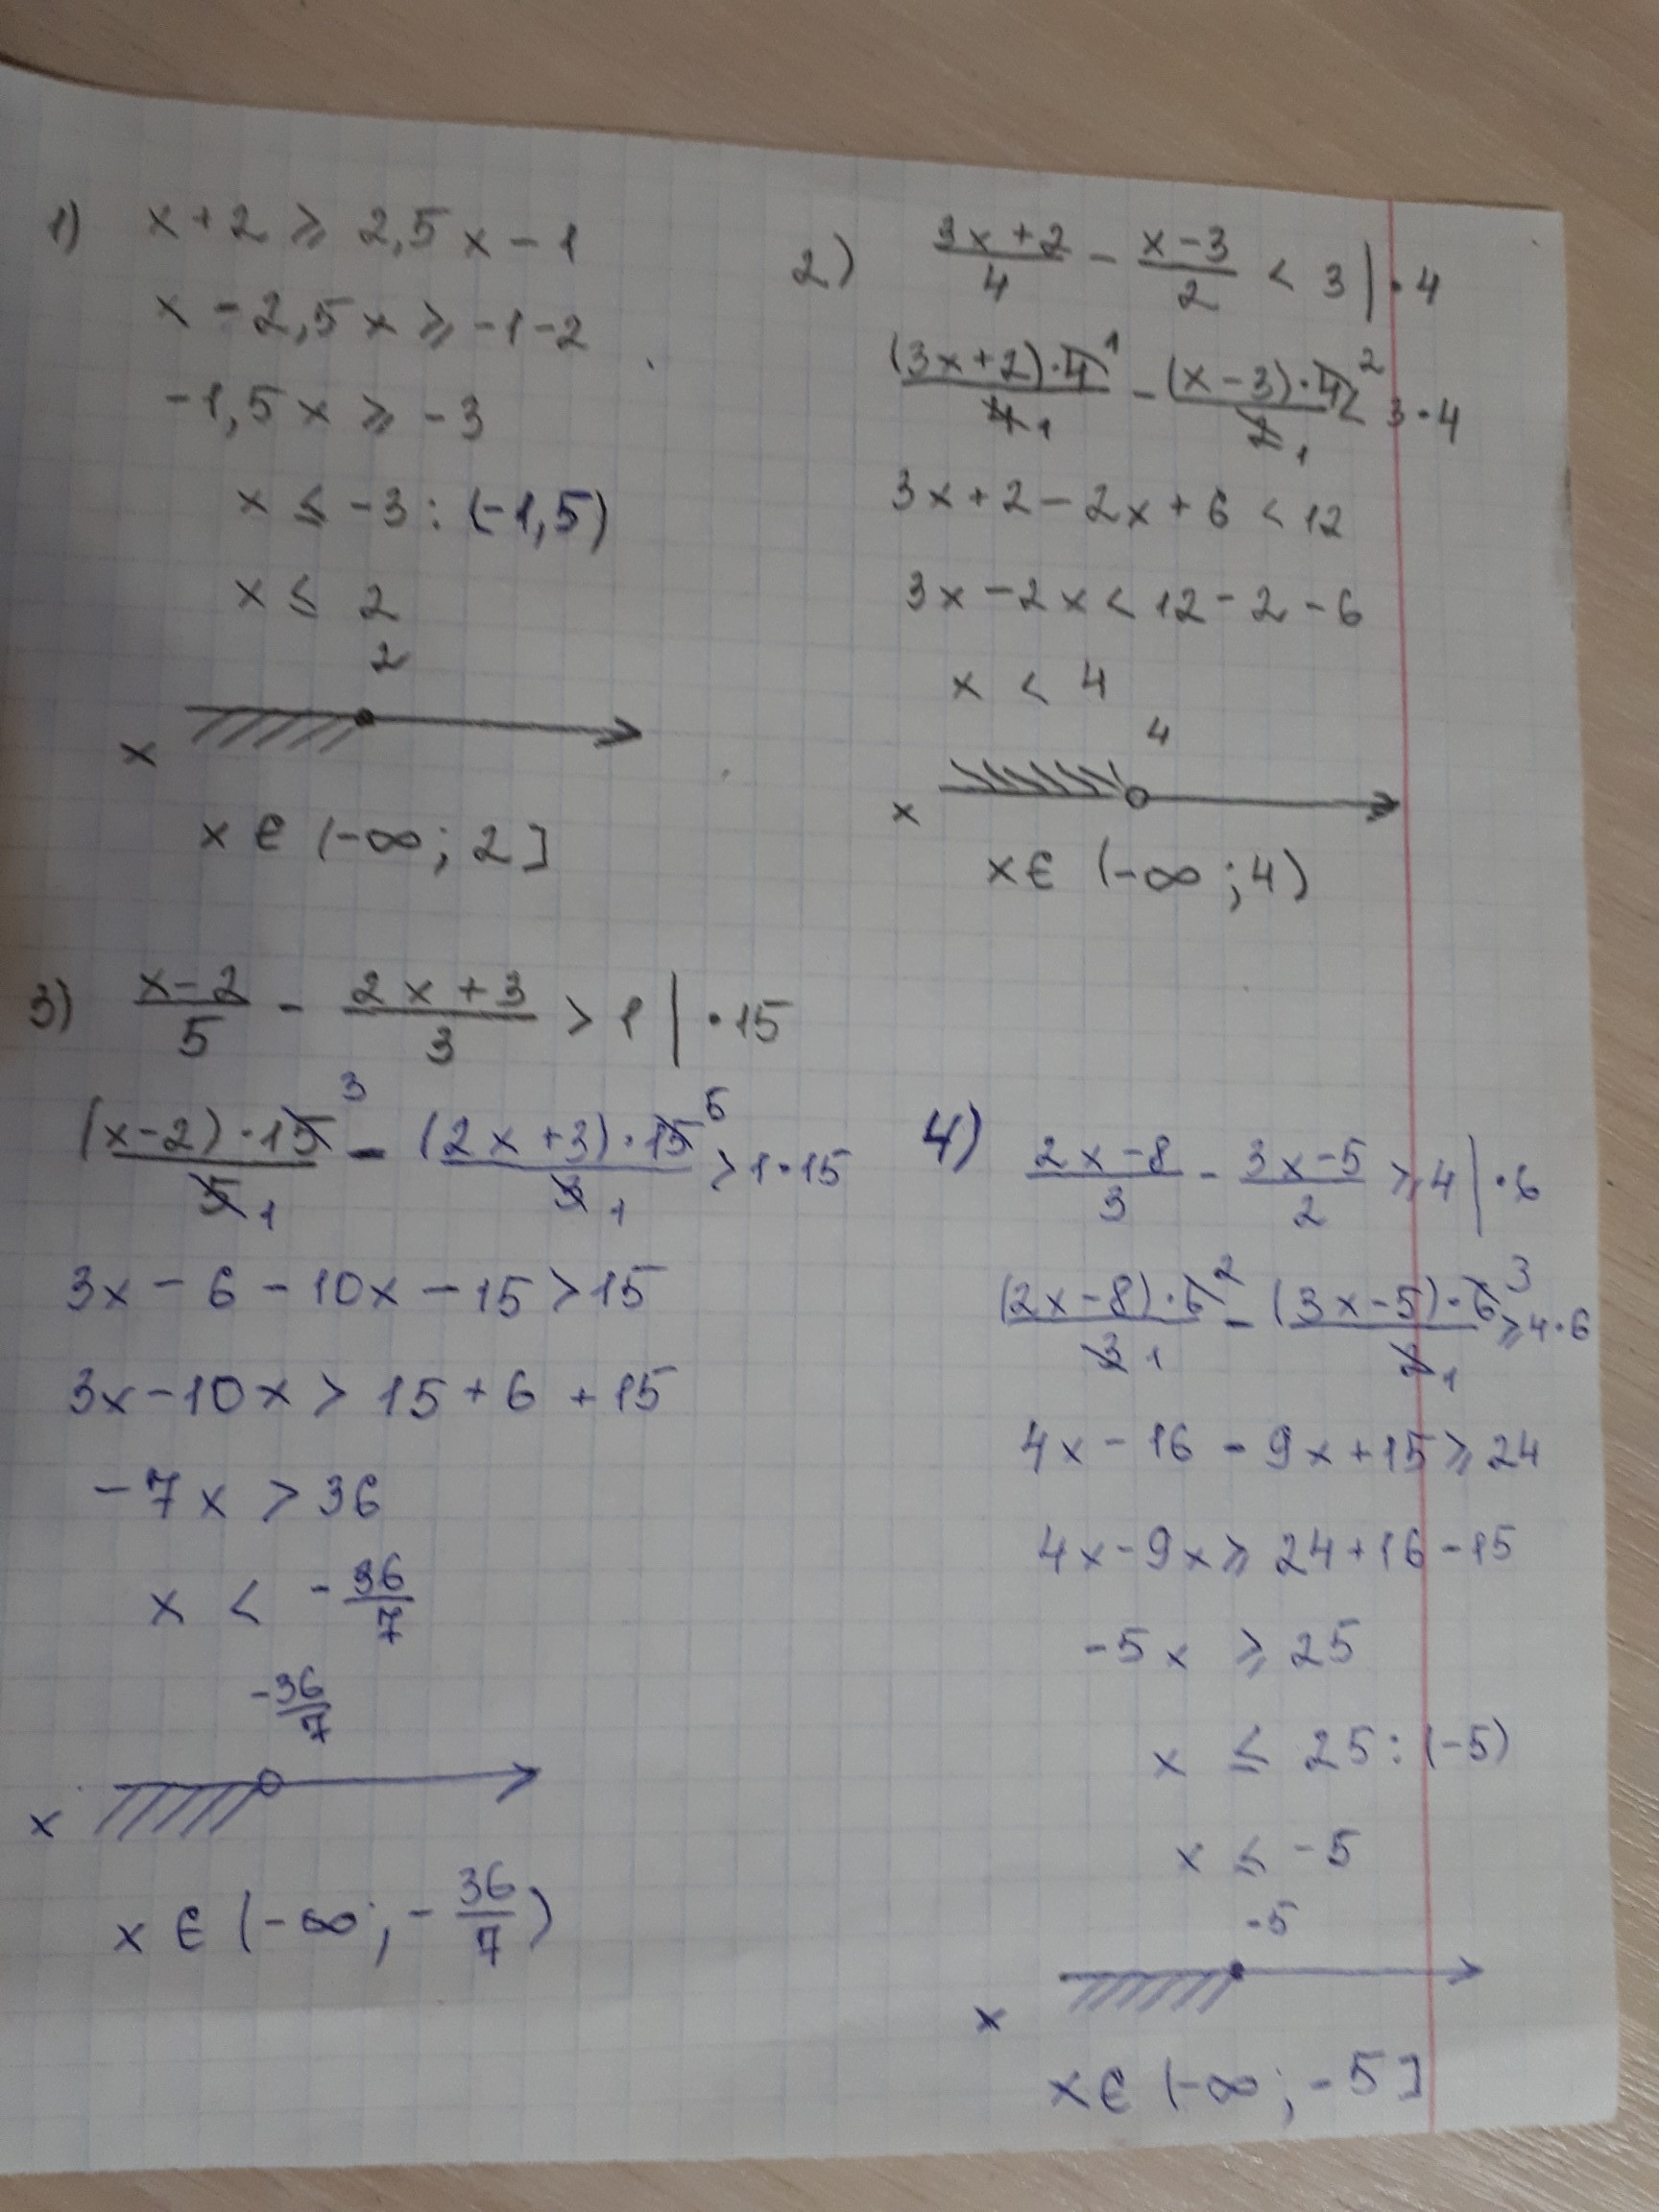 1) x + 2 ⩾ 2,5x - 1
x - 2,5x ⩾ -1 - 2
-1,5x ⩾ -3
x ⩽ -3 : (-1,5)
x ⩽ 2
2
x
x ∈ (-∞; 2]
2) (3x + 2)/4 - (x - 3)/2 < 3 | · 4
(3x + 2) · 4 ¹/4 ₁ - (x - 3) · 4 ²/2 ₁ < 3 · 4
3x + 2 - 2x + 6 < 12
3x - 2x < 12 - 2 - 6
x < 4
4
x
x ∈ (-∞; 4)
3) (x - 2)/5 - (2x + 3)/3 > 1 | · 15
(x - 2) · 15 ³/5 ₁ - (2x + 3) · 15 ⁵/3 ₁ > 1 · 15
3x - 6 - 10x - 15 > 15
3x - 10x > 15 + 6 + 15
-7x > 36
x < -36/7
-36/7
x
x ∈ (-∞; -36/7)
4) (2x - 8)/3 - (3x - 5)/2 ⩾ 4 | · 6
(2x - 8) · 6 ²/3 ₁ - (3x - 5) · 6 ³/2 ₁ ⩾ 4 · 6
4x - 16 - 9x + 15 ⩾ 24
4x - 9x ⩾ 24 + 16 - 15
-5x ⩾ 25
x ⩽ 25 : (-5)
x ⩽ -5
-5
x
x ∈ (-∞; -5]